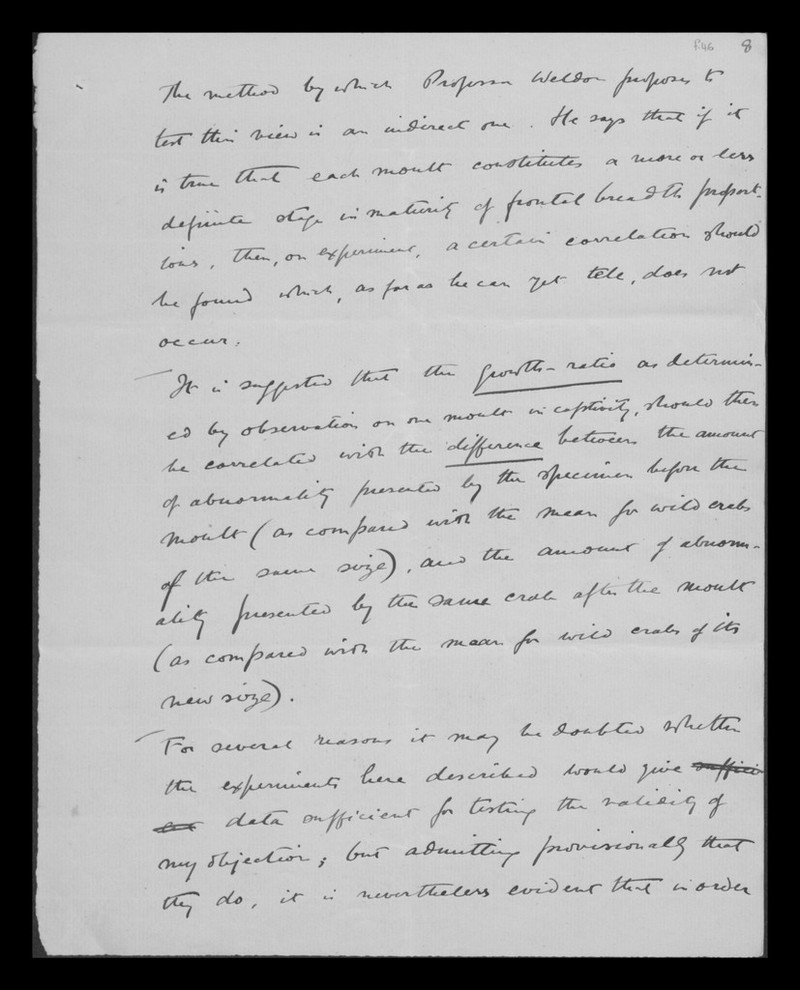 f.46 8
The method by which Professor Weldon proposes to
test this view is an indirect one. He says that if it
is true that each moult constitutes a more or less
definite stage in maturity of frontal breadth proport-
ions, then, on experiment, a certain correlation should
be found which, as far as he can yet tell, does not
occur.
It is suggested that the growth-ratio as determin-
ed by observation on one moult in captivity, should then
be correlated with the difference between the amount
of abnormality presented by the specimen before the
moult (as compared with the mean for wild crabs
of the same size), and the amount of abnorm-
ality presented by the same crab after the moult
(as compared with the mean for wild crabs of its
new size).
For several reasons it may be doubted whether
the experiments here described would give suffici-
ent data sufficient for testing the validity of
my objection; but admitting provisionally that
they do, it is nevertheless evident that in order